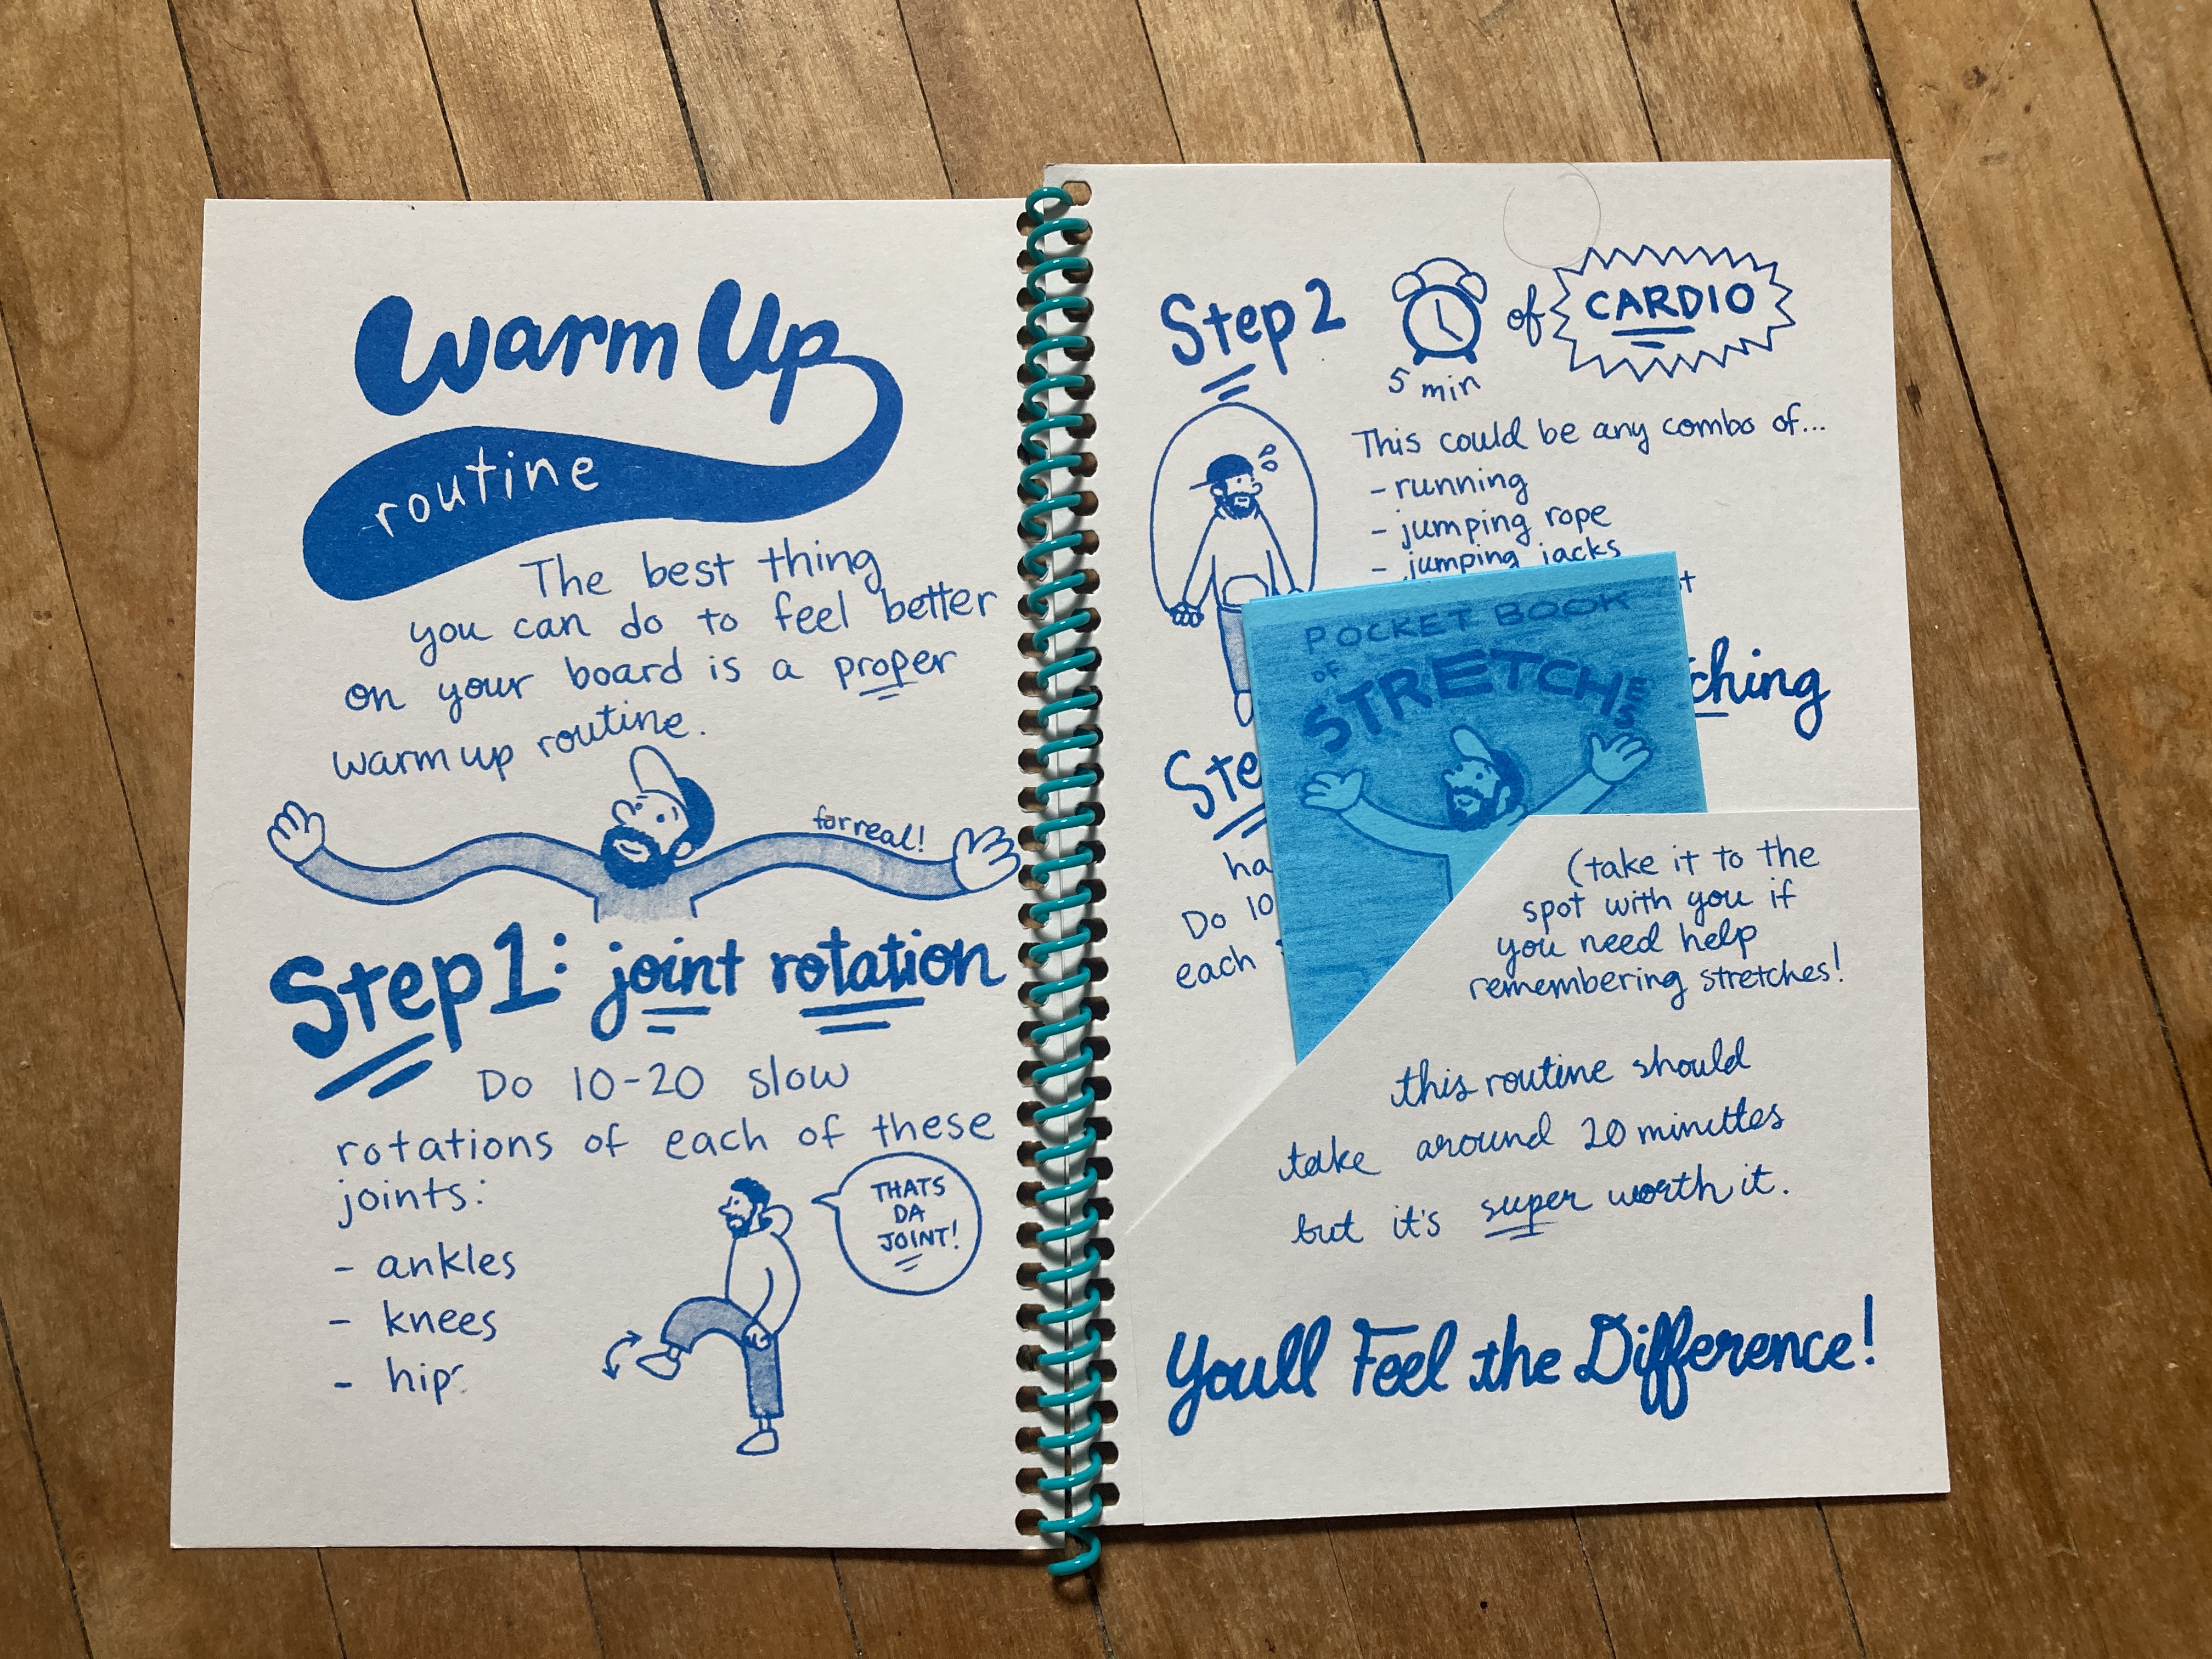 Warm Up
routine
The best thing
you can do to feel better
on your board is a proper
warm up routine.
for real!
Step 1: joint rotation
Do 10-20 slow
rotations of each of these
joints:
- ankles
- knees
- hip
THATS
DA
JOINT!
Step 2
5 min
of
CARDIO
This could be any combo of...
- running
- jumping rope
- jumping jacks
ching
Ste
ha
Do 10
each
POCKET BOOK
OF
STRETCHES
(take it to the
spot with you if
you need help
remembering stretches!
this routine should
take around 20 minutes
but it's super worth it.
Youll Feel the Difference!